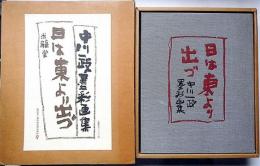 中川一政墨彩画集
日は東より
出づ
求龍堂
日は東より
出づ
中川一政
墨彩画集